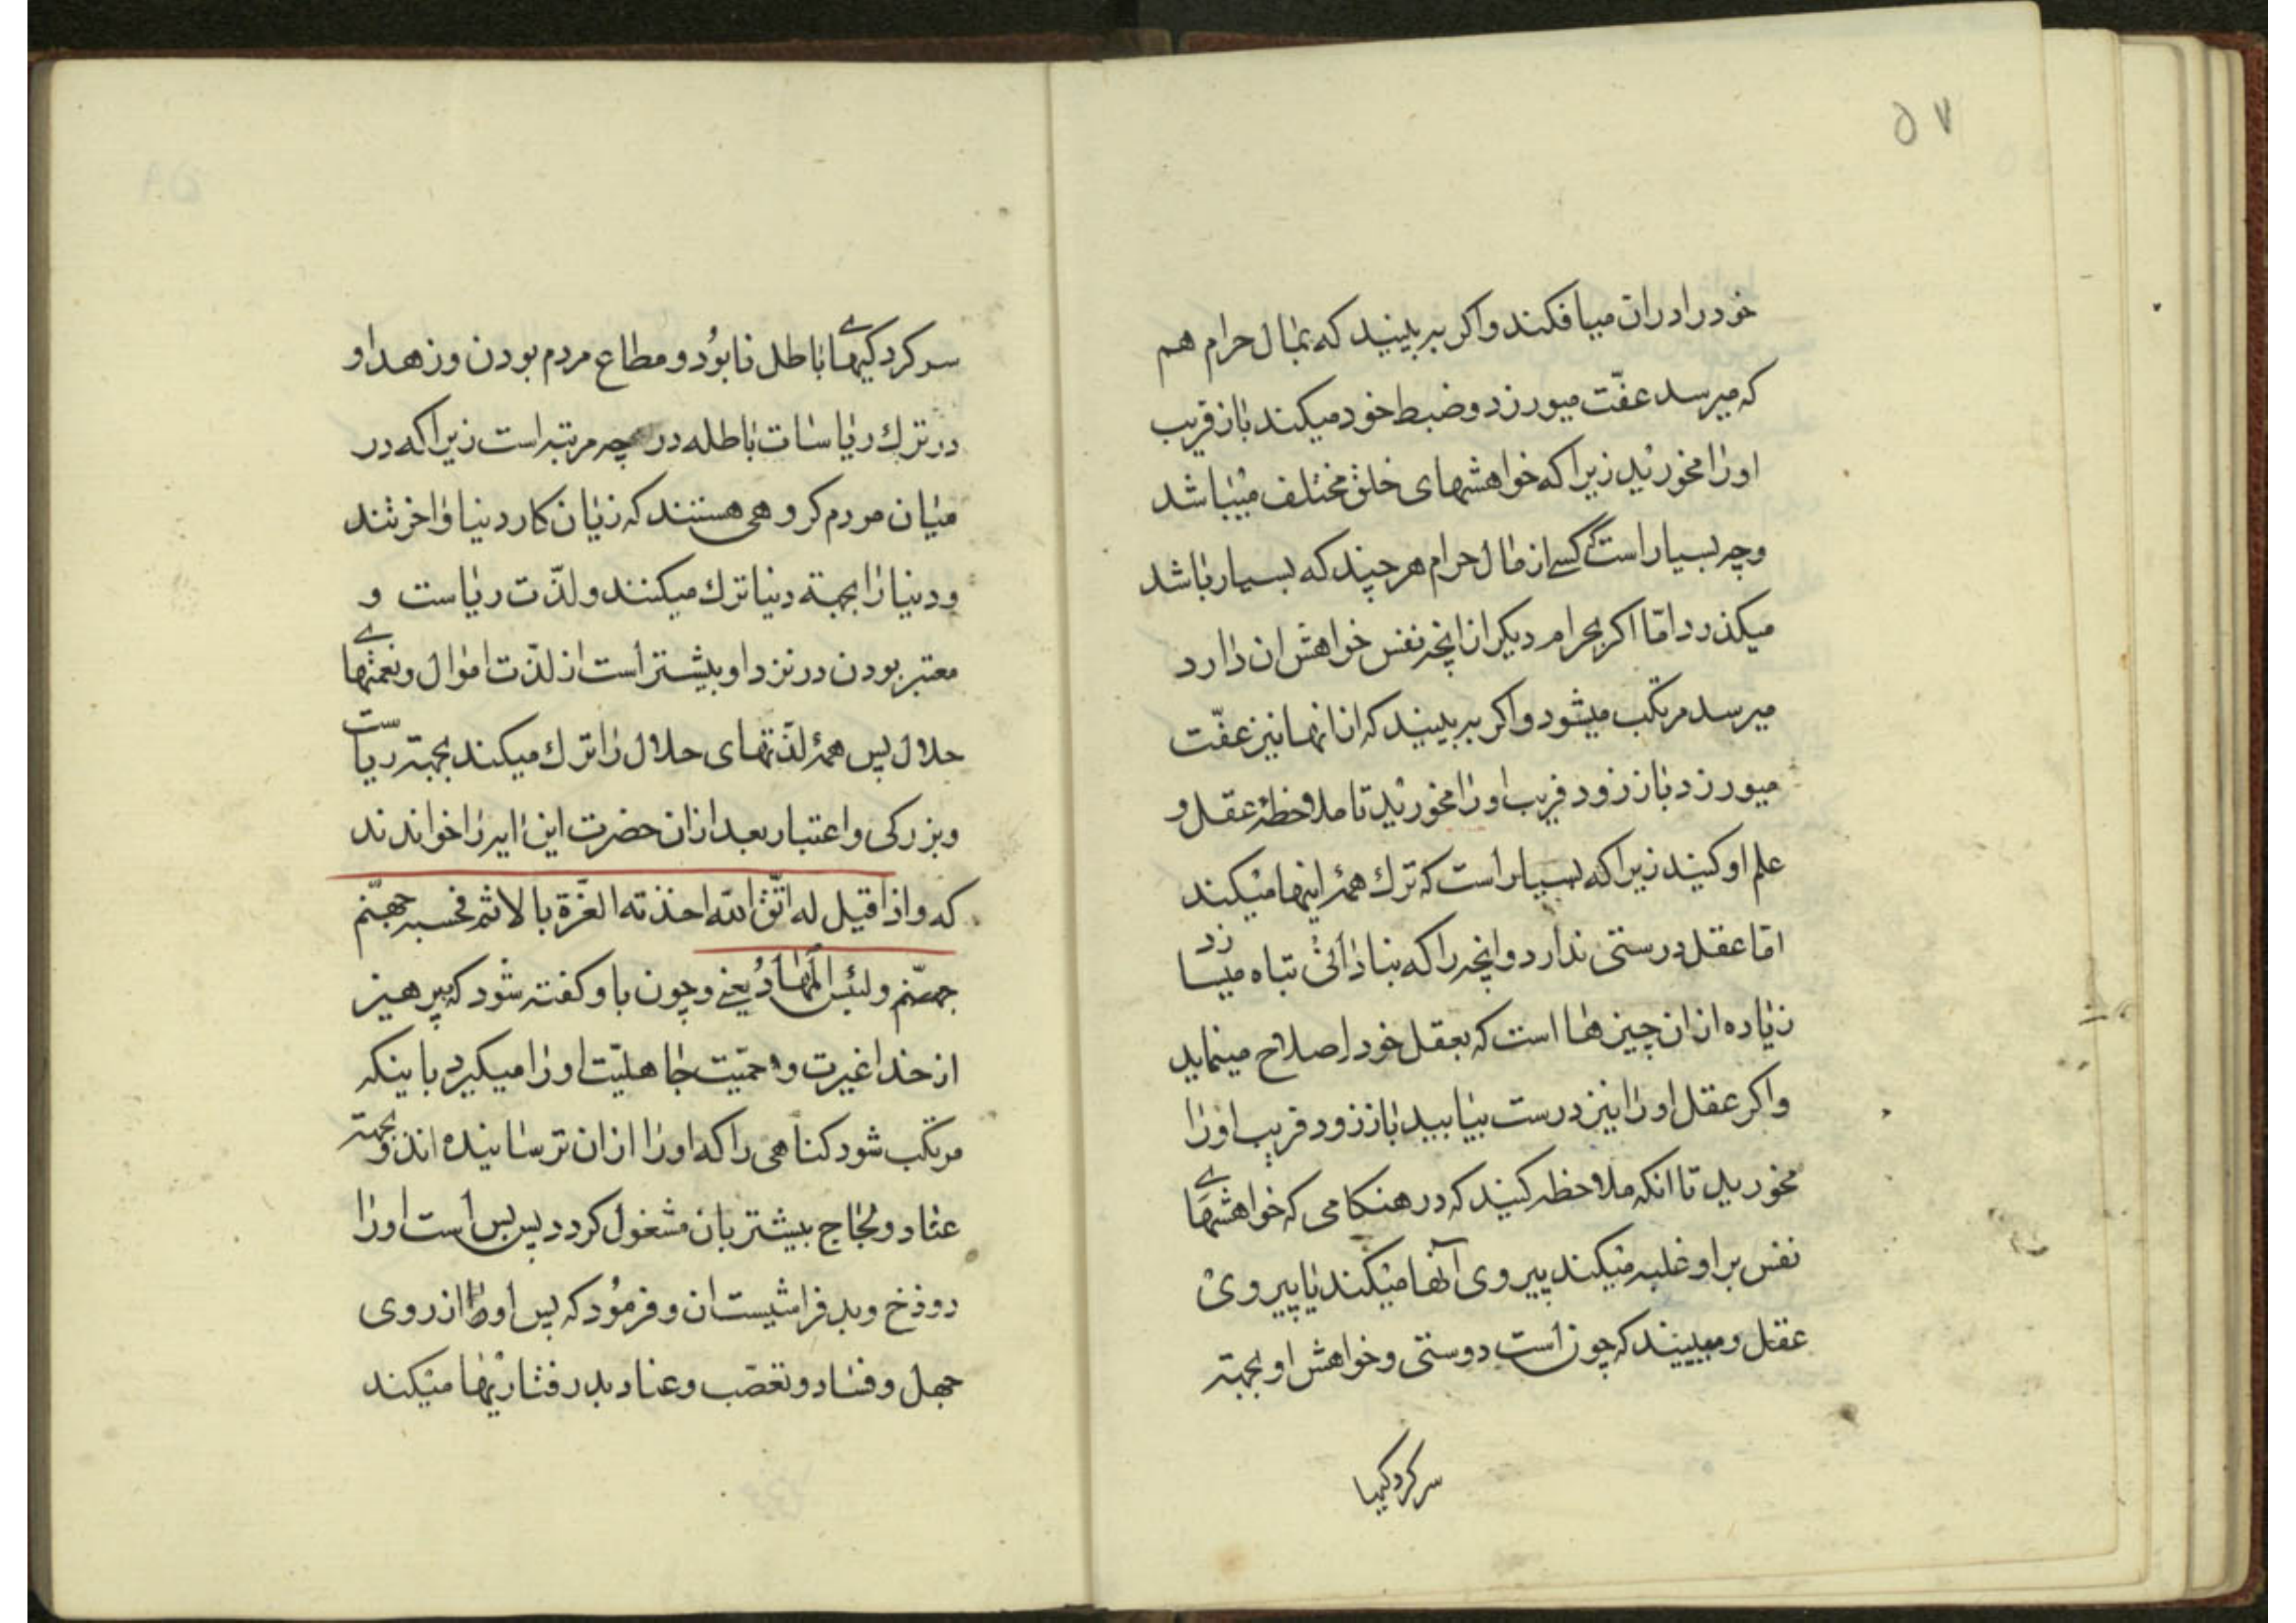 ۵۷
خود را در ان میافکند و اکر به بینید که بمال حرام هم
که میرسد عفّت میورزد و ضبط خود میکند باز فریب
او را مخورید زیرا که خواهشهای خلق مختلف میباشد
و چه بسیار است که کسے از مال حرام هر چند که بسیار باشد
میکذرد امّا اکر بحرام دیکر از انچه نفس خواهش ان دارد
میرسد مرتکب میشود و اکر به بینید که از انها نیز عفّت
میورزد باز زود فریب او را مخورید تا ملاحظهٔ عقل و
علم او کنید زیرا که بسیار است که ترك همهٔ اینها میکند
امّا عقل درستی ندارد و انچه را که بنادانی تباه میسازد
زیاده از ان چیزها است که بعقل خود اصلاح مینماید
و اکر عقل او را نیز درست بیابید باز زود فریب او را
مخورید تا انکه ملاحظه کنید که در هنکامی که خواهشهاے
نفس بر او غلبه میکند پیروی آنها میکند یا پیروی
عقل و به بینید که چون است دوستی و خواهش او بجهته
سرکردکیها
سرکردکیهاے باطل نابود و مطاع مردم بودن و زهد او
در ترك ریاسات باطله در چه مرتبه است زیرا که در
میان مردم کروهی هستند که زیان کار دنیا و اخرتند
و دنیا را بجهته دنیا ترك میکنند و لذّت ریاست و
معتبر بودن در نزد او بیشتر است از لذّت اموال و نعمتهاے
حلال پس همهٔ لذّتهای حلال را ترك میکند بجهته ریاست
و بزرکی و اعتبار بعد از ان حضرت این ایه را خواندند
که و اذا قیل له اتّق الله اخذته العزّة بالاثم فحسبه جهنّم
جهنّم و لبئس المهاد یعنے و چون باو کفته شود که بپرهیز
از خدا غیرت و حمیّت جاهلیّت او را میکیرد باینکه
مرتکب شود کناهی را که او را از ان ترسانیده اند و بجهته
عناد و لجاج بیشتر بان مشغول کردد پس بس است او را
دوزخ و بد فرامشیست ان و فرمود که پس او از روی
جهل و فساد و تعصّب و عناد بد رفتاریها میکند